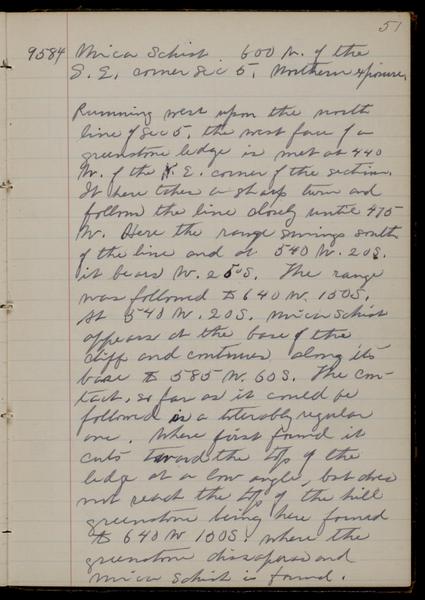 51
9584 Mica Schist 600 N. of the
S. E. corner Sec 5. Northern exposure.
Running west upon the north
line of Sec 5, the west face of a
greenstone ledge is met at 440
W. of the N. E. corner of the section.
It here takes a sharp turn and
follows the line closely until 475
W. Here the range swings south
of the line and at 540 W. 20S.
it bears W. 25°S. The range
was followed to 640 W. 150S.
At 540 W. 20S. mica schist
appears at the base of the
cliff and continues along its
base to 585 W. 60S. The con-
tact, so far as it could be
followed is a tolerably regular
one. Where first found it
cuts toward the top of the
ledge at a low angle, but does
not reach the top of the hill
greenstone being here found
to 640 W 100S. where the
greenstone disappears and
mica schist is found.